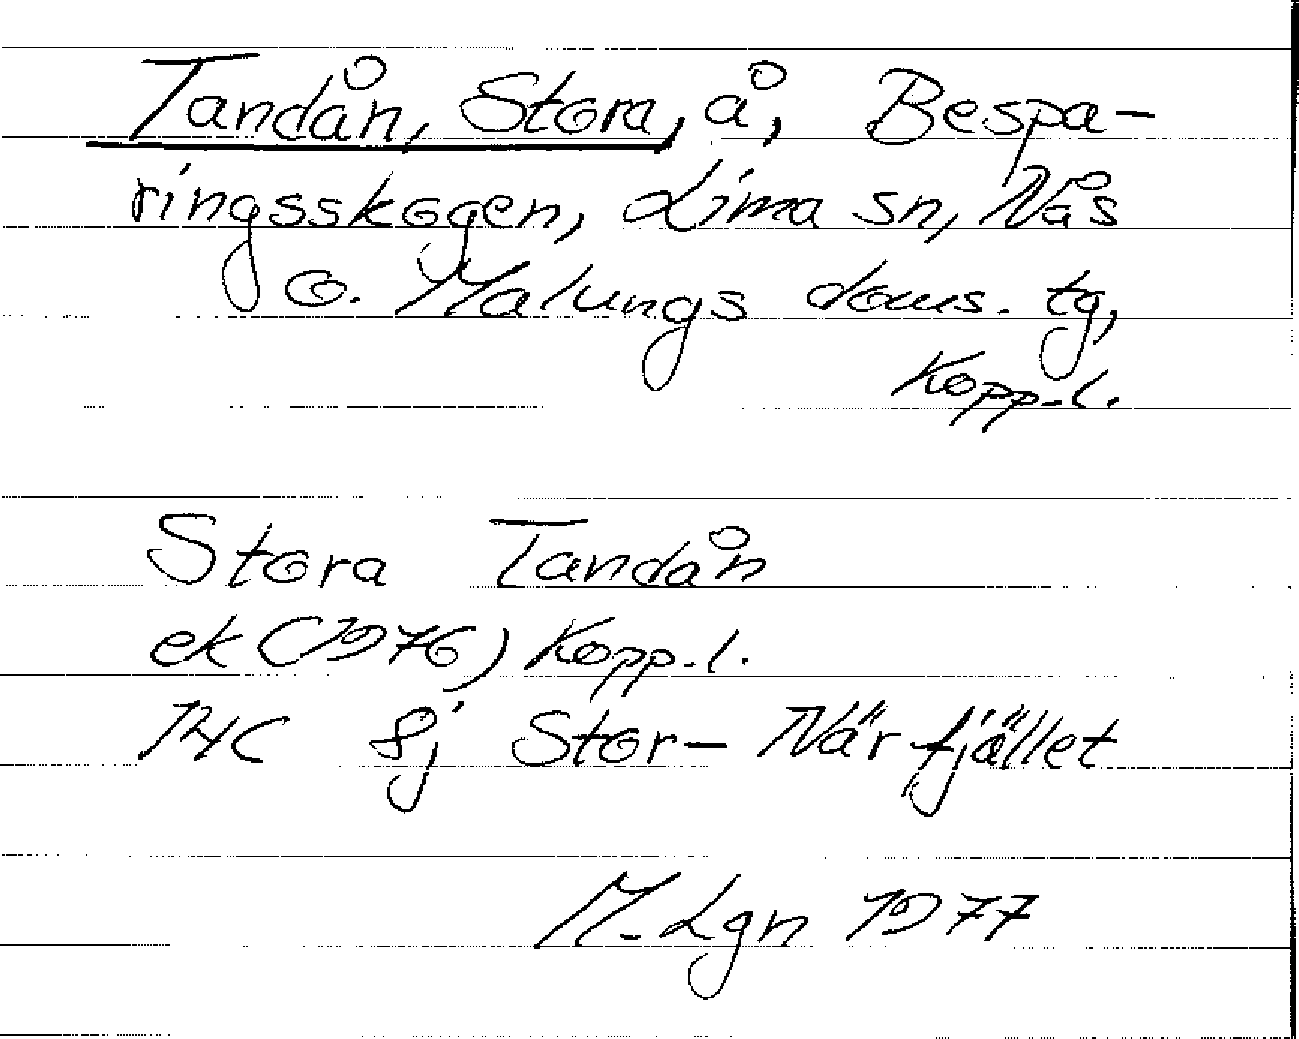 Tandån, Stora, å, Bespa-
ringsskogen, Lima sn, Nås
o. Malungs doms. tg,
Kopp.l.
Stora Tandån
ek (1976) Kopp.l.
14C 8j Stor-Närfjället
M.Lgn 1977